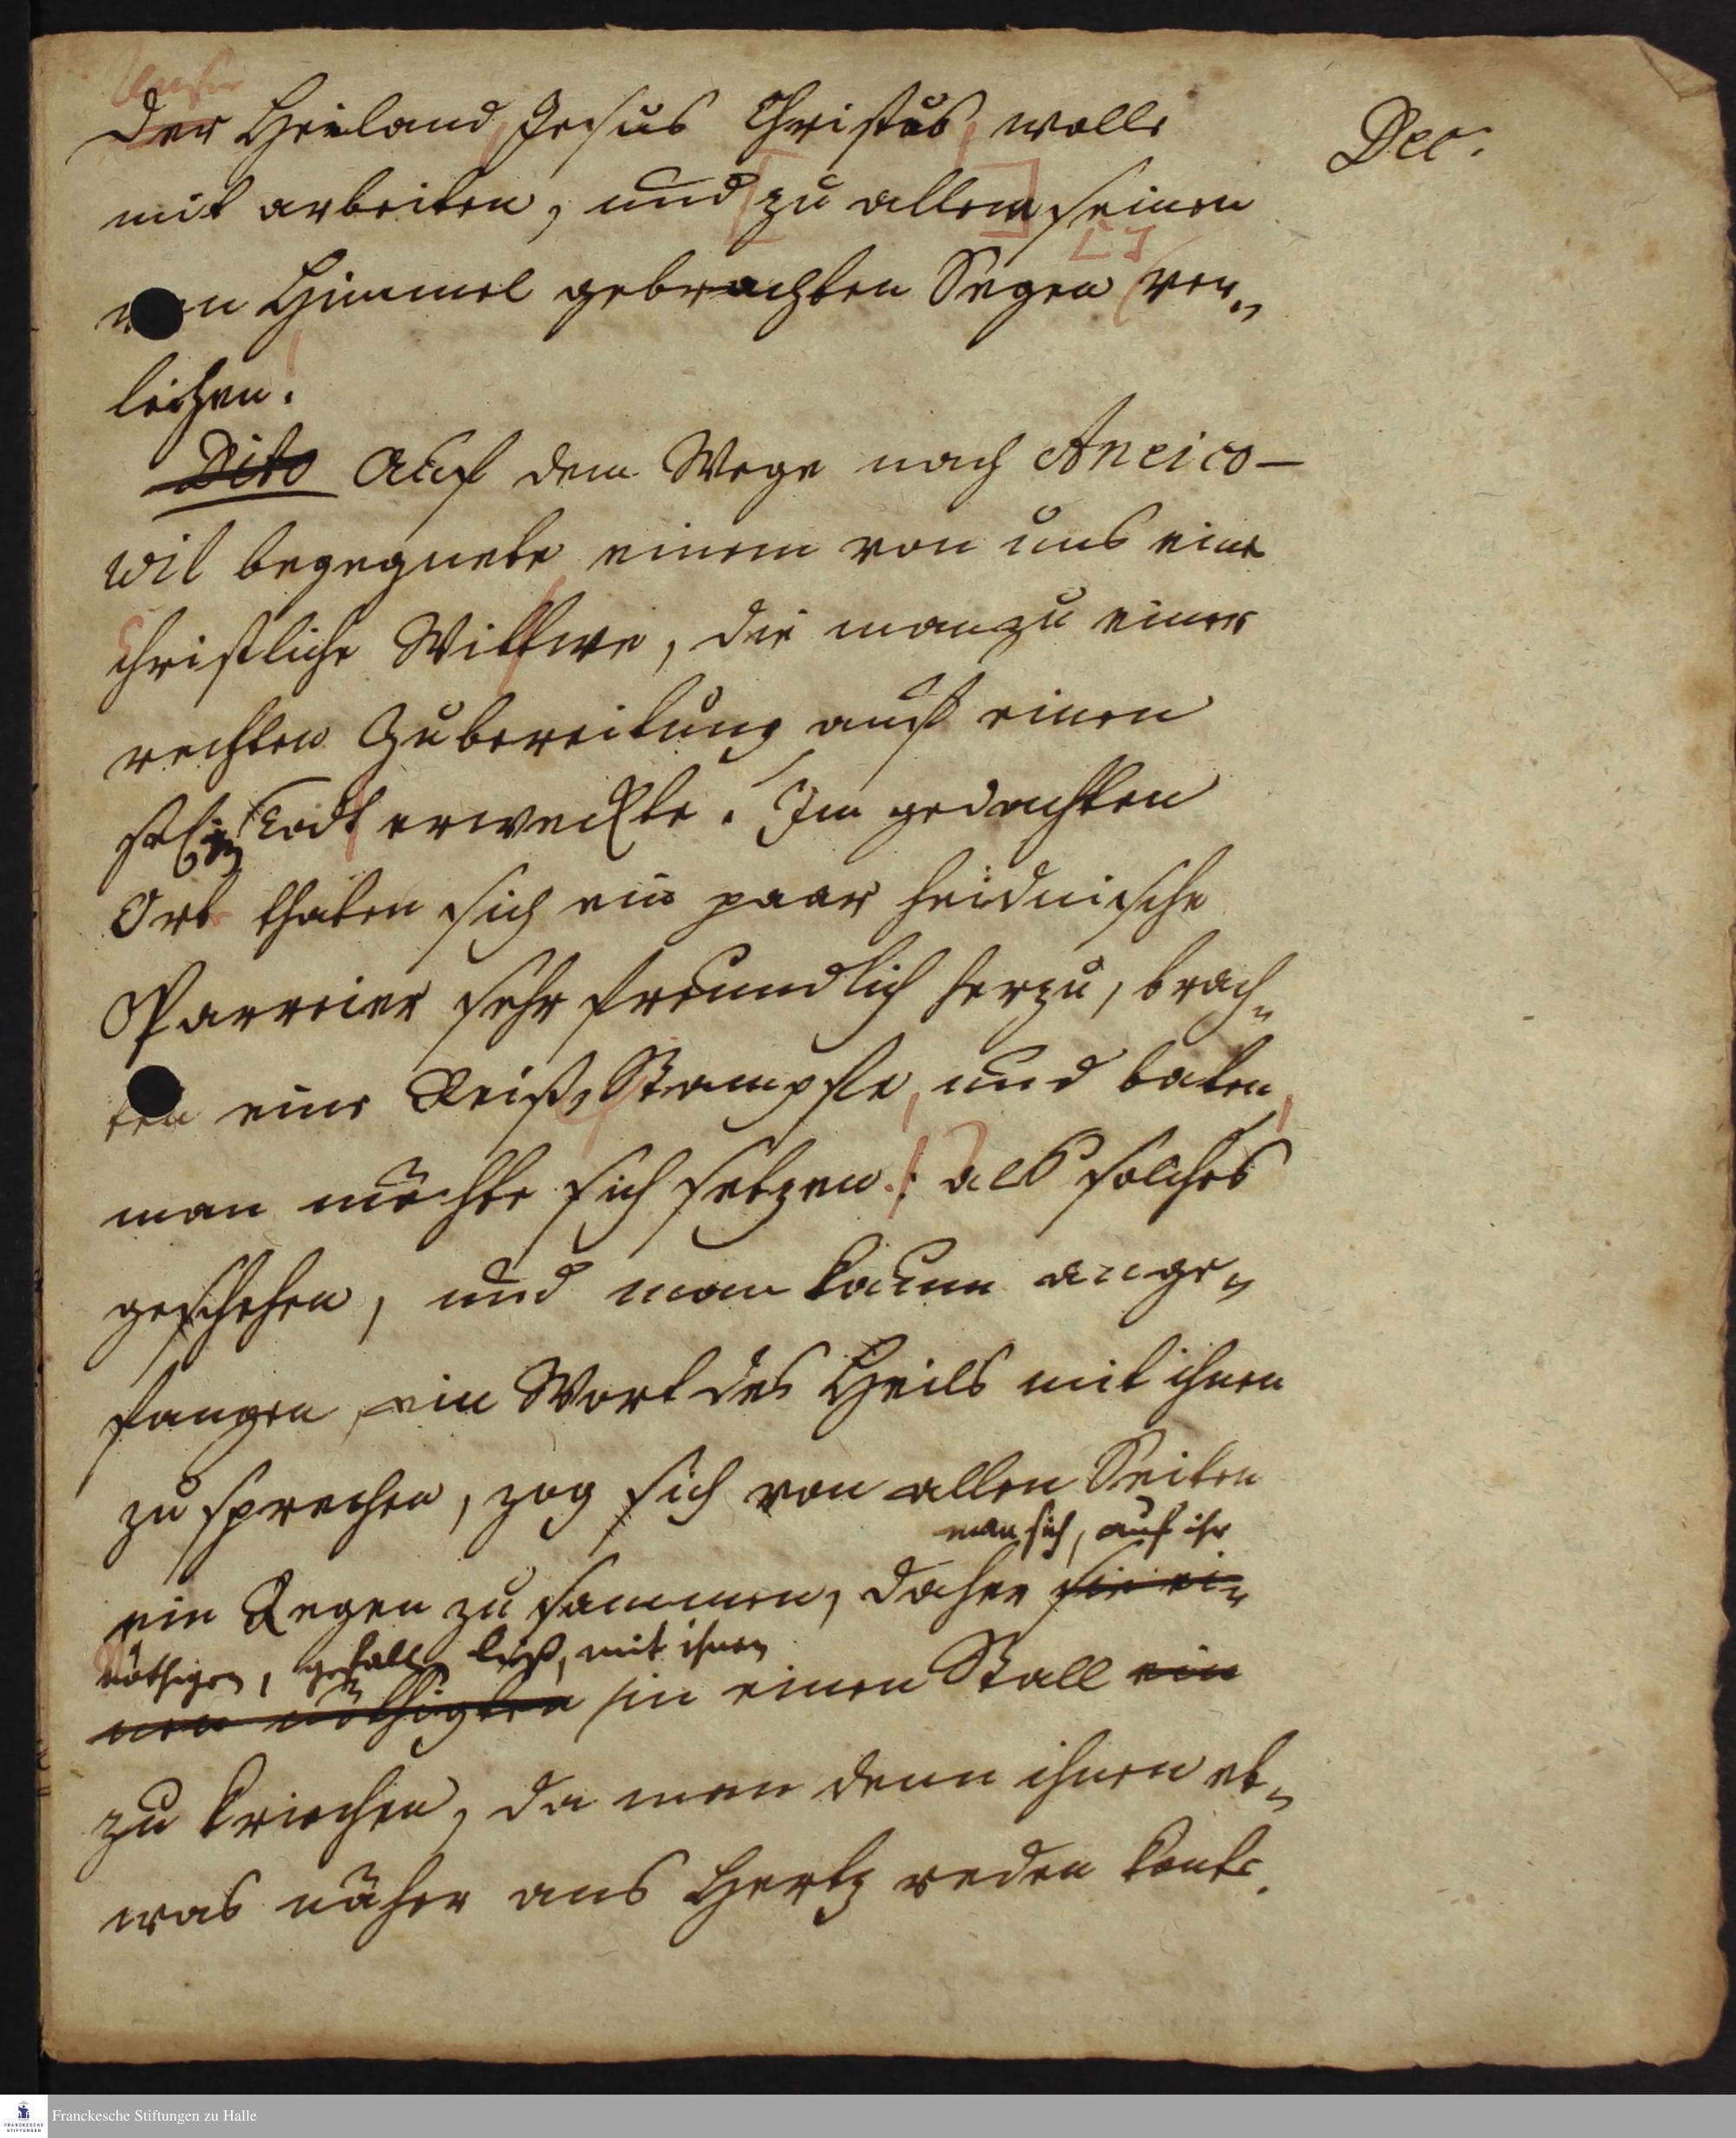 Unser
Der Heiland, Jesus Christus, wolle
Dec.
mit arbeiten, und [zu allem] seinen
von Himmel gebrachten Segen ver„
leihen.
Dito Auf dem Wege nach Aneico-
wil begegnete einem von uns eine
christliche Wittwe, die man zu einer
rechten Zubereitung auf einen
Todt erweckte. Im gedachten
Ort thaten sich ein paar heidnische
Parreier sehr freundlich herzu, brach„
ten eine Reiß„Stampfe, und baten,
man möchte sich setzen: als solches
geschehen, und man kaum ange„
fangen, ein Wort des Heils mit ihnen
zu sprechen, zog sich von allen Seiten
man sich, auf ihr
ein Regen zusammen, daher sie ei„
Nöthigen, gefallen ließ, mit ihnen
nen nöthigten in einen Stall ein
zu kriechen, da man denn ihnen et„
was näher ans Hertz reden konte.
Franckesche Stiftungen zu Halle
FRANCKESCHE
STIFTUNGEN